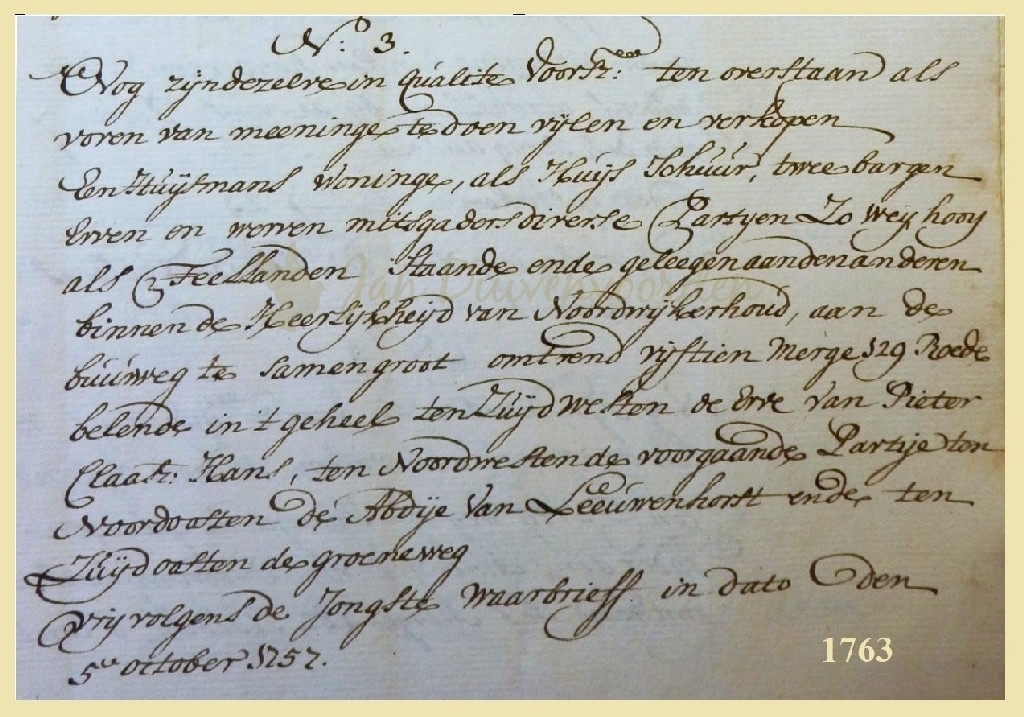 No: 3.
Nog zijn dezelve in qualité Voorsz: ten overstaan als
voren van meeninge te doen vijlen en verkopen
Een Huijsmans Woninge, als Huijs Schuúr, twee bargen
Erven en werven mitsgaders diverse Partyen Zo Weij, hooij
als Teellanden Staande ende geleegen aan den anderen
binnen de Heerlijkheijd van Noordwijkerhoud, aan de
buúrweg te samen groot omtrend vijftien Merge 529 Roede
belende in 't geheel ten Zuijdwesten de Erve van Pieter
Claasz: Hans, ten Noordwesten de voorgaande Partije ten
Noordoosten de Abdije van Leeúwenhorst ende ten
Zuijdoosten de groeneweg
vrij volgens de Jongste Waarbrieff in dato den
5en october 1757.
Jan Duivenvoorden
1763